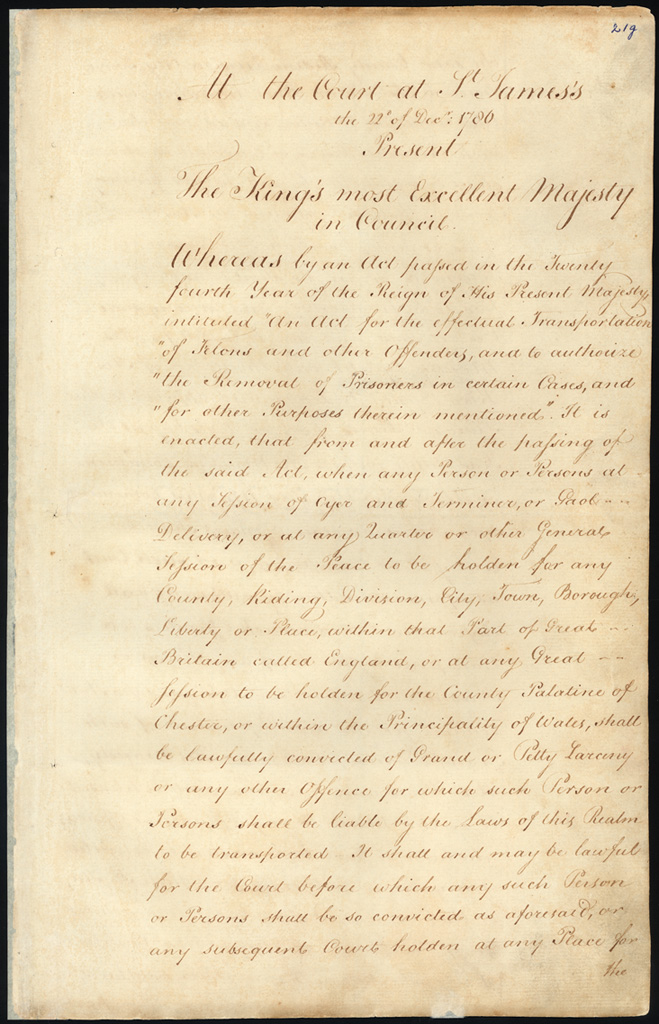 219
At the Court at St. James's
the 22d of Decr: 1786
Present
The King's most Excellent Majesty
in Council.
Whereas by an Act passed in the Twenty
fourth Year of the Reign of His Present Majesty,
intituled "An Act for the effectual Transportation
"of Felons and other Offenders, and to authorize
"the Removal of Prisoners in certain Cases, and
"for other Purposes therein mentioned". It is
enacted, that from and after the passing of
the said Act, when any Person or Persons at
any Session of Oyer and Terminer, or Gaol --
Delivery, or at any Quarter or other General
Session of the Peace to be holden for any
County, Riding, Division, City, Town, Borough,
Liberty or Place, within that Part of Great --
Britain called England, or at any Great --
Session to be holden for the County Palatine of
Chester, or within the Principality of Wales, shall
be lawfully convicted of Grand or Petty Larceny
or any other Offence for which such Person or
Persons shall be liable by the Laws of this Realm
to be transported It shall and may be lawful
for the Court before which any such Person
or Persons shall be so convicted as aforesaid, or
any subsequent Court holden at any Place for
the